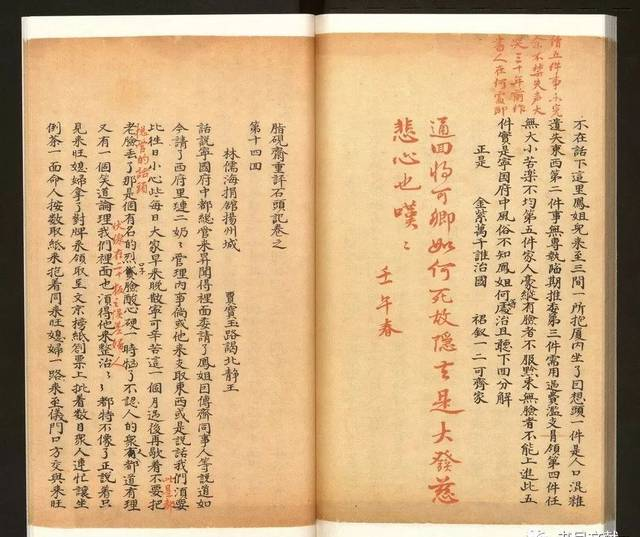 讀五件事未完
余不禁失声大
哭三十年前作
書人在何處耶
不在話下這里鳳姐兒來至三間一所抱厦内坐了因想頭一件是人口混雜
遺失東西第二件事無專執臨期推委第三件需用過費濫支冒領第四件任
無大小苦樂不均第五件家人豪縱有臉者不服黔束無臉者不能上進此五
件實是寧國府中風俗不知鳳姐何處治且聽下回分解
正是　金紫萬千誰治國　裙釵一二可齊家
通回將可卿如何死故隱去是大發慈
悲心也嘆〻　壬午春
脂硯齋重評石頭記卷之
第十四回
林儒海捐館揚州城　賈寶玉路謁北静王
話說寧國府中都總管來昇聞得裡面委請了鳳姐因傳齊同事人等說道如
今請了西府里璉二奶〻管理内事倘或他來支取東西或是說話我們須要
比徃日小心些每日大家早來晚散寧可辛苦這一個月過後再歇着不要把
此是都
總管的話頭
老臉丢了那是個有名的烈貨臉酸心硬一時惱了不認人的衆人都道有理
又有一個笑道論理我們裡面也湏得他來整治〻〻都特不像了正說着只
伏線在二十板之悞差婦人
見來旺媳婦拿了對牌來領取呈文京榜紙劄票上批着数目衆人連忙讓坐
倒茶一面命人按数取紙來抱着同來旺媳婦一路來至儀門口方交與來旺